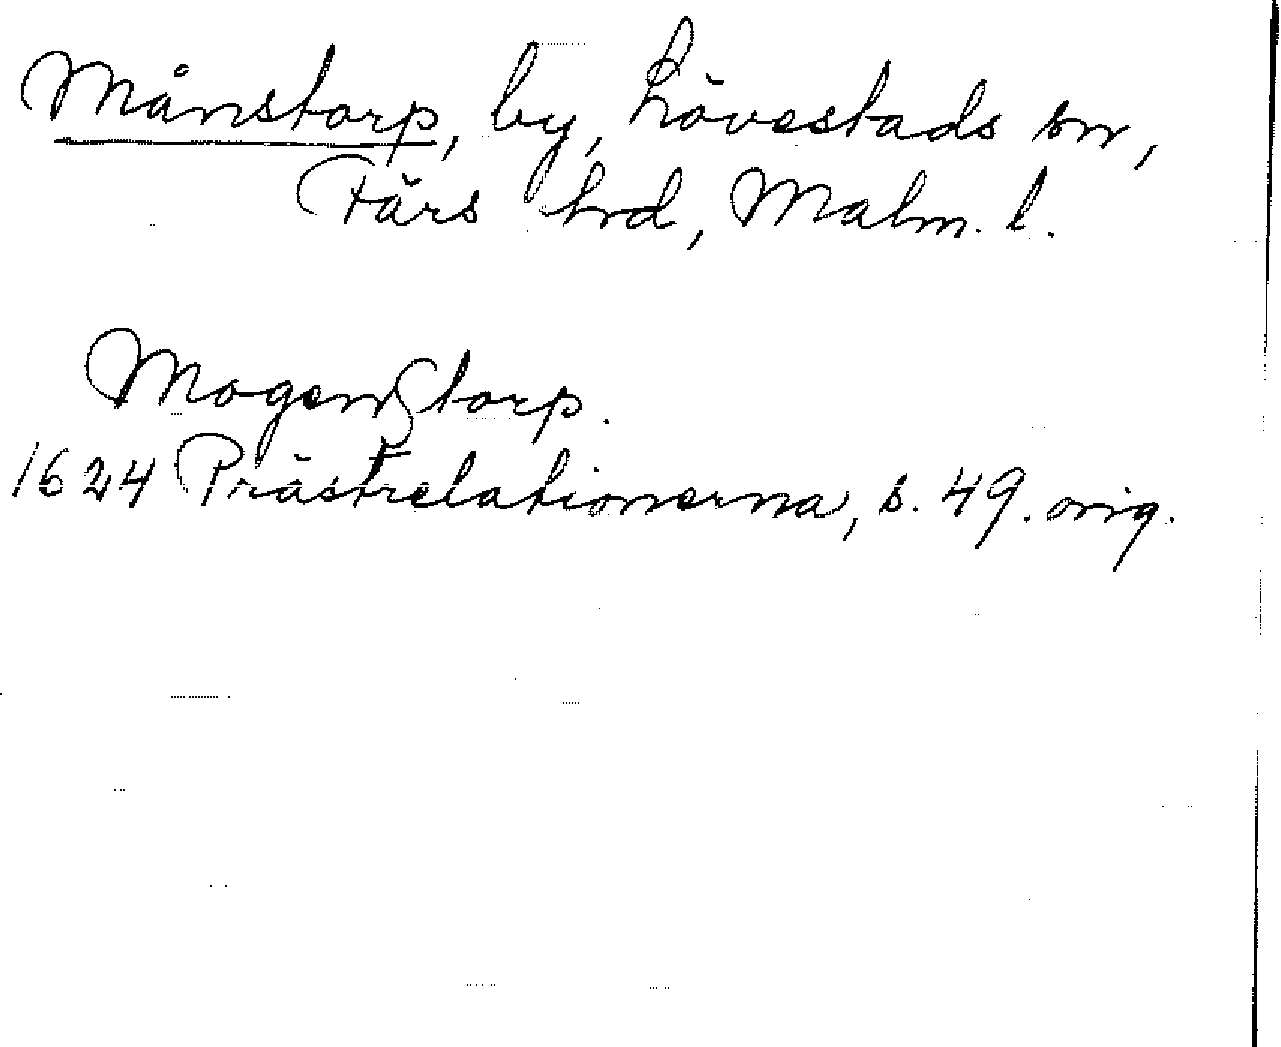 Månstorp, by, Lövestads sn,
Färs hrd, Malm. l.
Mogenstorp.
1624 Prästrelationerna, s. 49. orig.